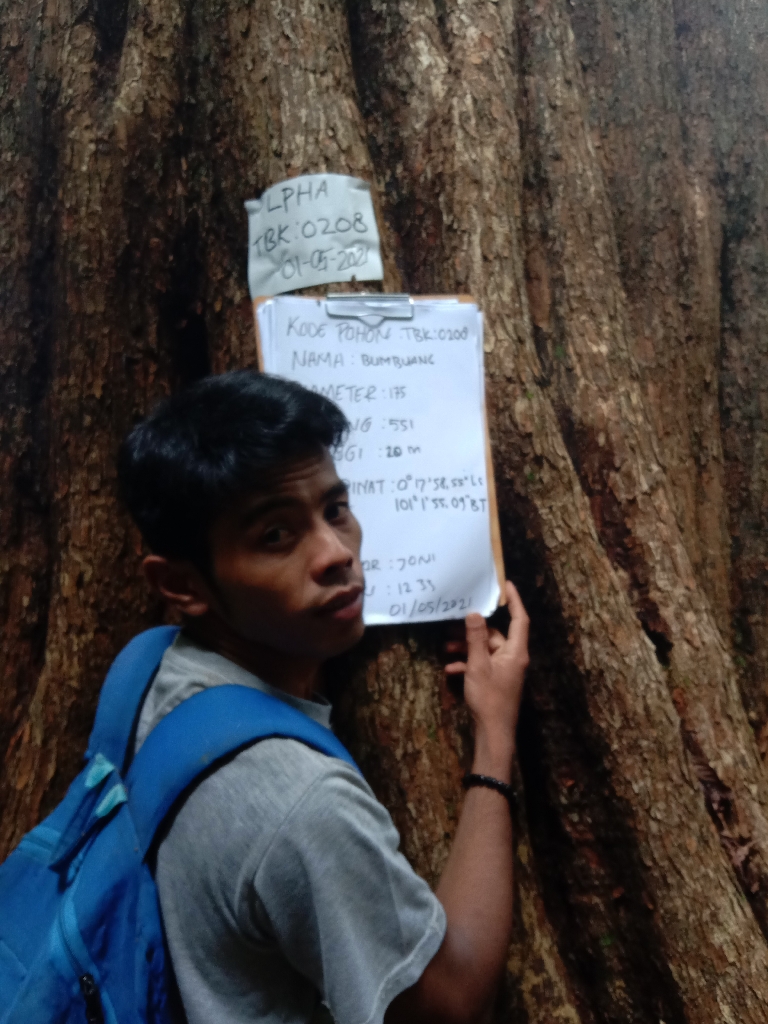 LPHA
TBK:0208
01-05-2021
KODE POHON : TBK:0208
NAMA : BUMBUANG
AMETER : 175
NG : 551
GGI : 20 m
PINAT : 0°17'58,55" LS
101°1'55.09" BT
OR : JONI
: 12 33
01/05/2021